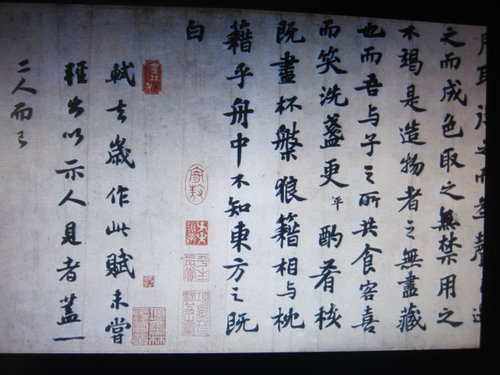 耳得之而為聲
之而成色取之無禁用之
不竭是造物者之無盡藏
也而吾与子之所共食客喜
而笑洗盞更平酌肴核
既盡杯槃狼籍相与枕
藉乎舟中不知東方之既
白
軾去歲作此賦未嘗
輕出以示人見者蓋一
二人而已